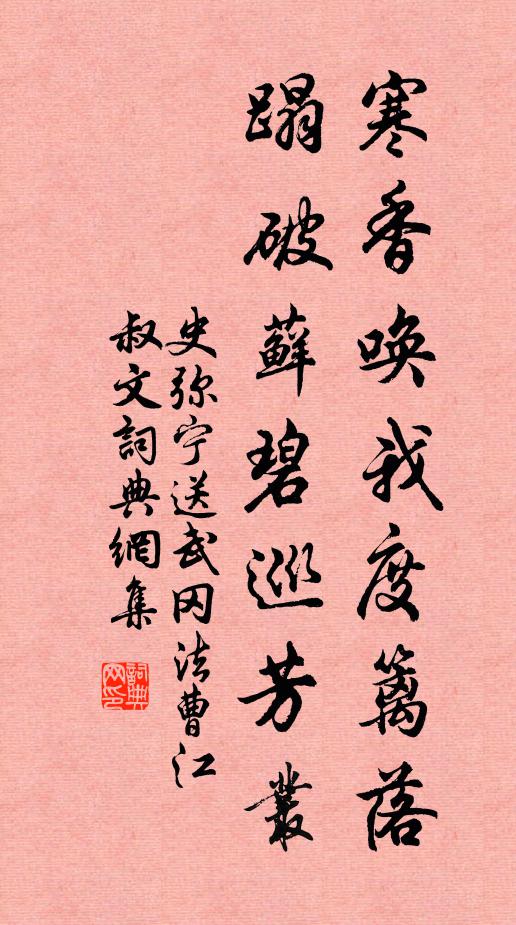 寒香唤我度篱落
蹋破藓碧巡芳丛
史弥宁送武冈法曹江
叔文詞典網集
詞典网印